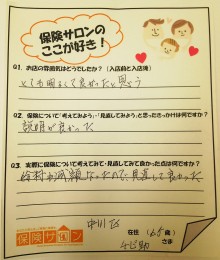 保険サロンの
ここが好き！
Q1. お店の雰囲気はどうでしたか？（入店前と入店後）
とても明るくて良かったと思う
Q2. 保険について「考えてみよう」・「見直してみよう」と思ったきっかけは何ですか？
説明が良かった
Q3. 実際に保険について考えてみて・見直してみて良かった点は何ですか？
なったので、見直して良かった
保険サロン
在住（65歳）
さま